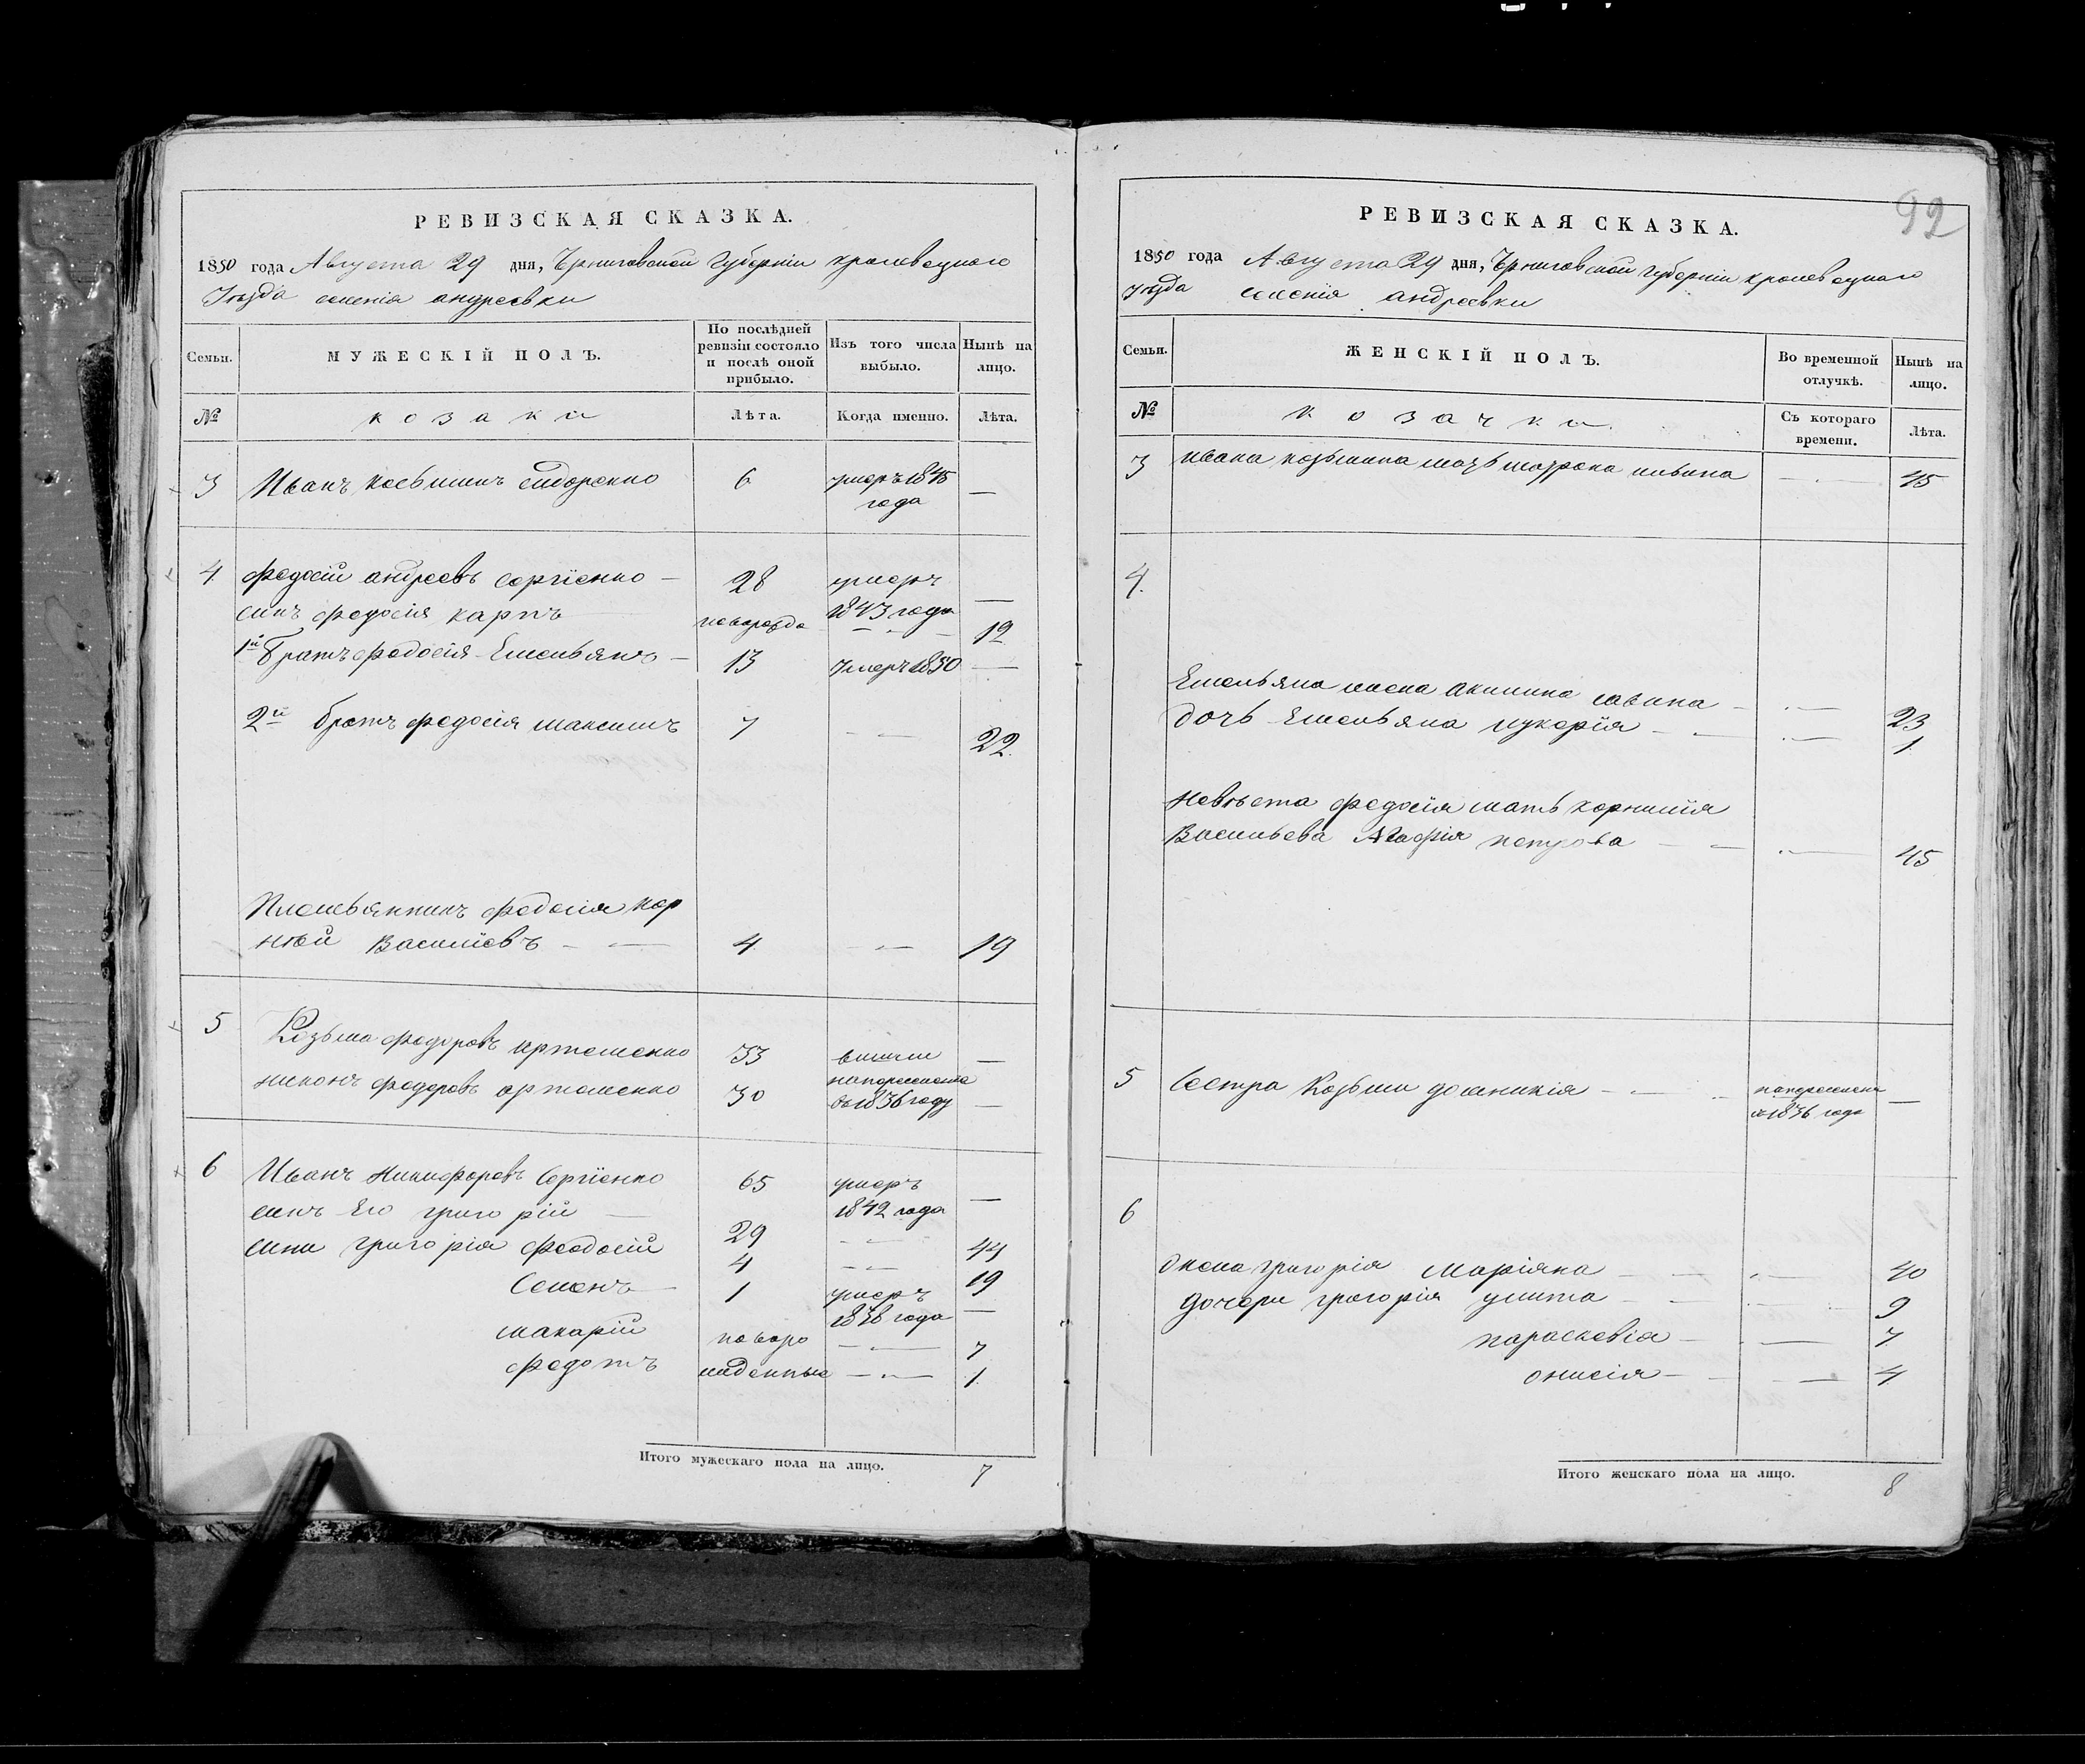 92
РЕВИЗСКАЯ СКАЗКА.
1850 года Августа 29 дня, Черниговской Губерніи кролевецкаго
Уезда селенія андреевки
Семьи.
МУЖЕСКІЙ ПОЛЪ.
По послѣдней ревизіи состояло и послѣ оной прибыло.
Изъ того числа выбыло.
Нынѣ на лицо.
№
козаки
Лѣта.
Когда именно.
Лѣта.
3 Иванъ сидоренко 6 умеръ 1845 —
года
4 федосій андреевъ Сергіенко — 28 умеръ —
синъ федосія карпъ 1843 года 12
1й братъ федосія Емельянъ — 13 умеръ 1850 —
2й братъ федосія максимъ 7 — 22
Племьянникъ федосія кор
ній Василіевъ — 4 — 19
5 Козьма федоровъ артеменко 33 —
никонъ федоровъ артеменко 30 1836 году —
6 Иванъ Никифоровъ Сергіенко 65 умеръ —
синъ Его григорій 29 1842 года 44
сини григорія феодосій 4 — 19
Семенъ 1 умеръ —
1838 года
макарій новоро — 7
федотъ жденные — 1
Итого мужескаго пола на лицо. 7
РЕВИЗСКАЯ СКАЗКА.
1850 года Августа 29 дня, Черниговской губерніи кролевецкаго
Уезда селенія андреевки
Семьи.
ЖЕНСКІЙ ПОЛЪ.
Во временной отлучкѣ.
Нынѣ на лицо.
№
козачки
Съ котораго времени.
Лѣта.
3 ивана мать — 45
4.
Емельяна жена акилина савина — 23
дочь Емельяна лукерія — 1
Невѣста федосія мать корнилія
Васильева Агафія петрова — 45
5 Сестра Козьми домникія — —
1836 года
6
жена григорія Маріяна — 40
дочери григорія улита — 9
парасковія — 7
онисія — 4
Итого женскаго пола на лицо. 8